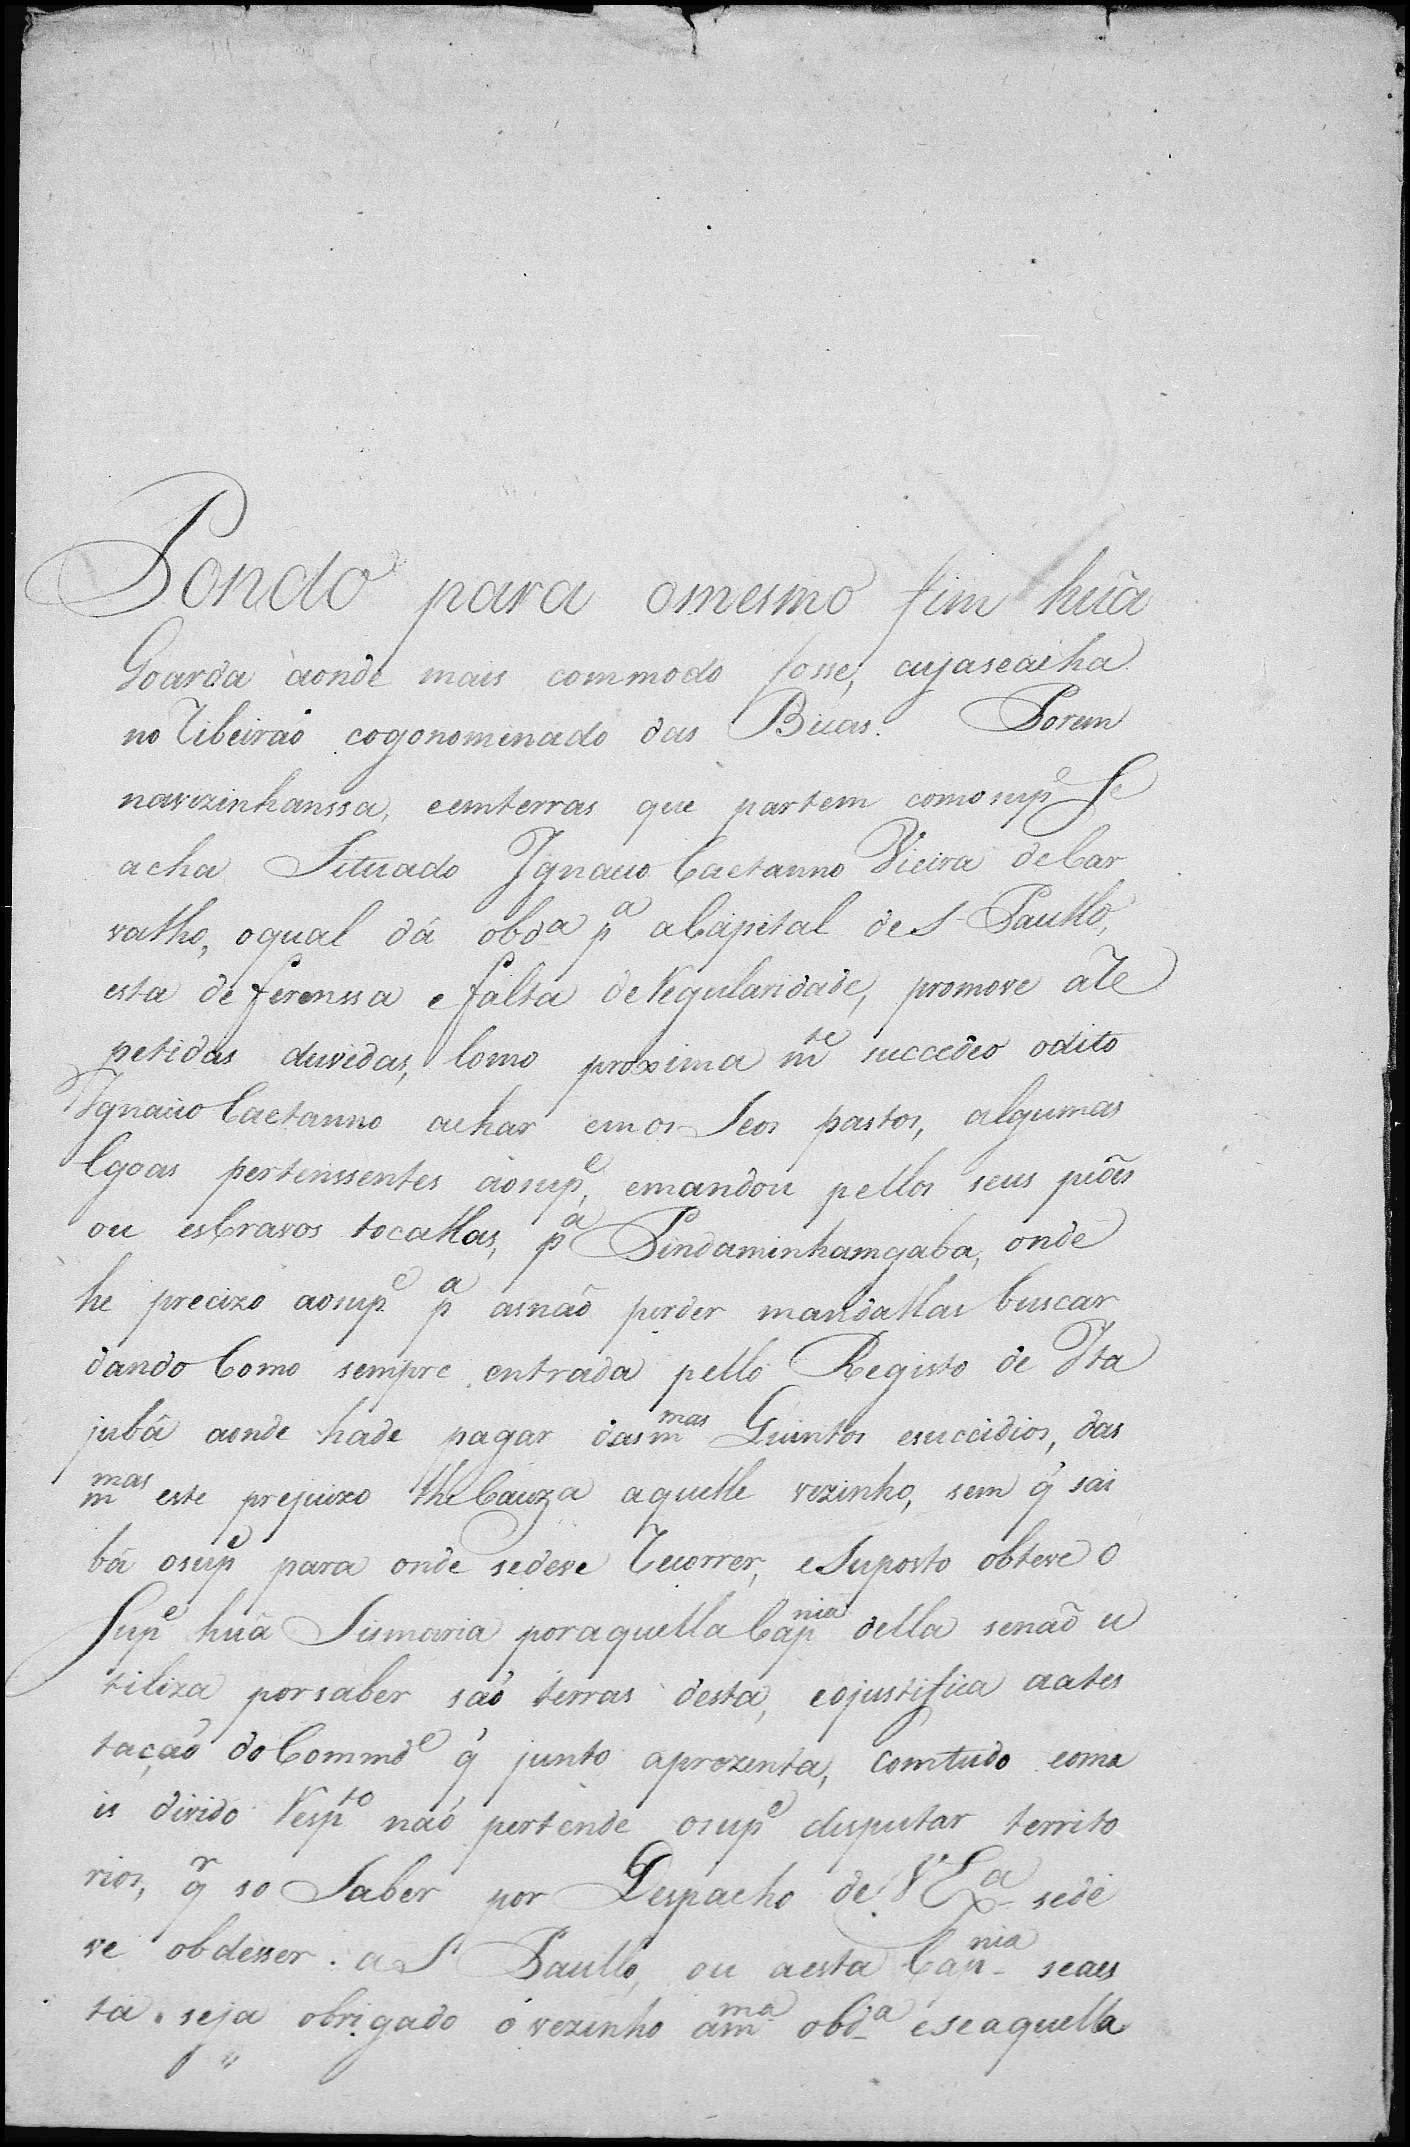 Pondo para omesmo fim huã
Goarda aonde mais commodo fosse, cujaseacha
no Ribeirão cogonominado das Bicas. Porem
navizinhanssa, eemterras que partem comosupe Se
acha Situado Ignacio Caetanno Vieira deCar
valho, oqual dá obda pa aCapital de S Paullo,
esta deferenssa e falta deRegularidade, promove aRe
petidas duvidas, Como proxima mte succedeo odito
Ignacio Caetanno achar emos Seos pastos, algumas
Egoas pertenssentes aosupe, emandou pellos seus piões
ou esCravos tocallas, pa Pindaminhamgaba, onde
he precizo aosupe pa asnão perder mandallas buscar
dando Como sempre entrada pello Registo de Ita
jubá aonde hade pagar dasmmas Quintos esuccidios, das
mmas este prejuizo lhe Cauza aquelle vezinho, sem q̃ sai
bá osupe para onde sedeve Recorrer, eSuposto obteve o
Supe huã Sismaria poraquella Capnia della senão u
tiliza porsaber são terras desta, eojustifica aates
tação doCommde q̃ junto aprezenta, comtudo coma
is divido Respto não pertende osupe disputar territo
rios, qr so Saber por Despacho de V Exa sede
ve obdesser a S Paullo, ou aesta Capnia seaes
ta seja obrigado o vezinho ámma obda eseaquella